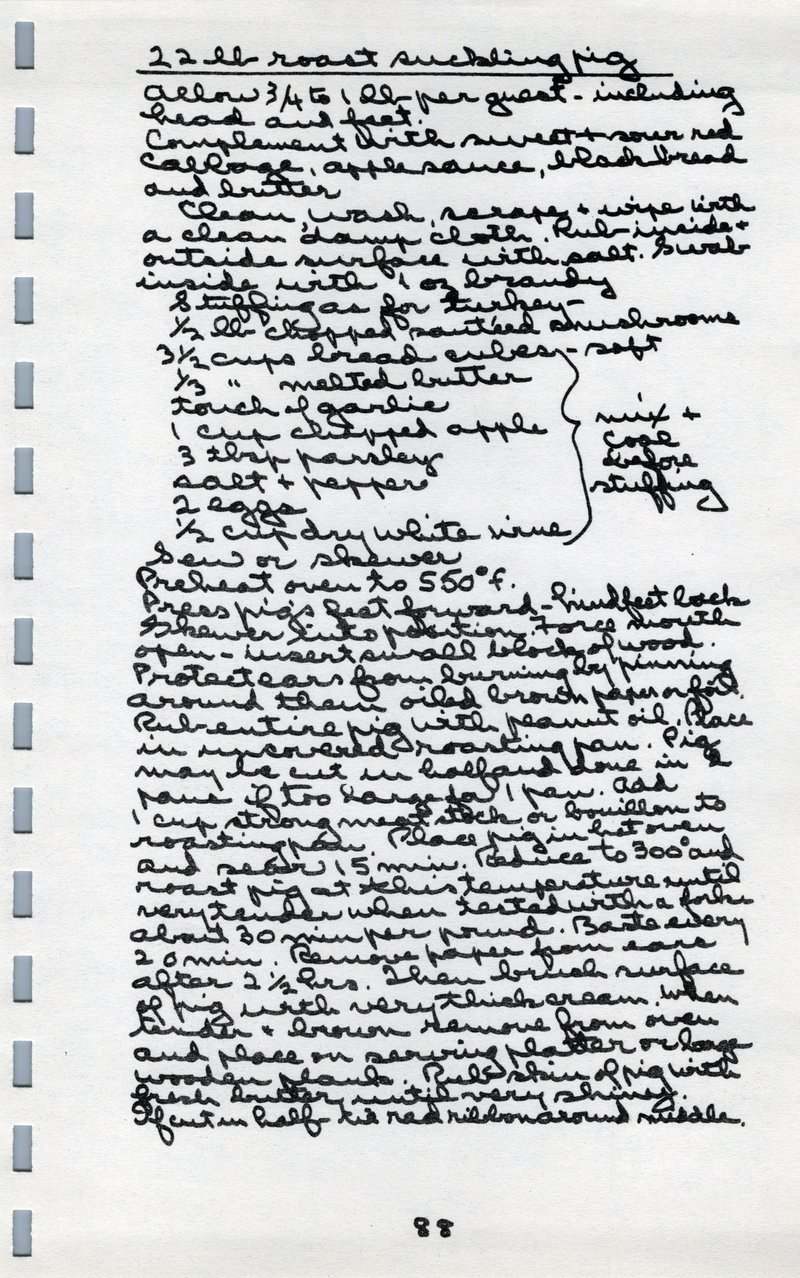 22 lb roast suckling pig
Allow 3/4 to 1 lb per guest - including
head and feet.
Complement with sweet + sour red
cabbage, applesauce, black bread
and butter
Clean, wash, scrape + wipe with
a clean damp cloth. Rub inside +
outside surface with salt. Swab
inside with 1 oz brandy
Stuffing as for turkey -
1/2 lb chopped sautéed mushrooms
3 1/2 cups bread cubes - soft
1/3 " melted butter
touch of garlic
1 cup chopped apple
3 tbsp parsley
salt + pepper
2 eggs
1/2 cup dry white wine
mix +
cool
before
stuffing
Sew or skewer
Preheat oven to 550° f.
Press pigs feet forward - hind feet back
Skewer into position. Force mouth
open - insert small block of wood.
Protect ears from burning by pinning
around them oiled brown paper or foil.
Rub entire pig with peanut oil. Place
in uncovered roasting pan. Pig
may be cut in half and done in 2
pans if too large for 1 pan. Add
1 cup strong meat stock or bouillon to
roasting pan. Place pig in hot oven
and sear 15 min. Reduce to 300° and
roast pig at this temperature until
very tender when tested with a fork -
about 30 min per pound. Baste every
20 min. Remove paper from ears
after 2 1/2 hrs. Then brush surface
of pig with very thick cream. When
tender + brown remove from oven
and place on serving platter or large
wooden plank. Rub skin of pig with
fresh butter until very shiney.
If cut in half - tie red ribbon around middle.
88